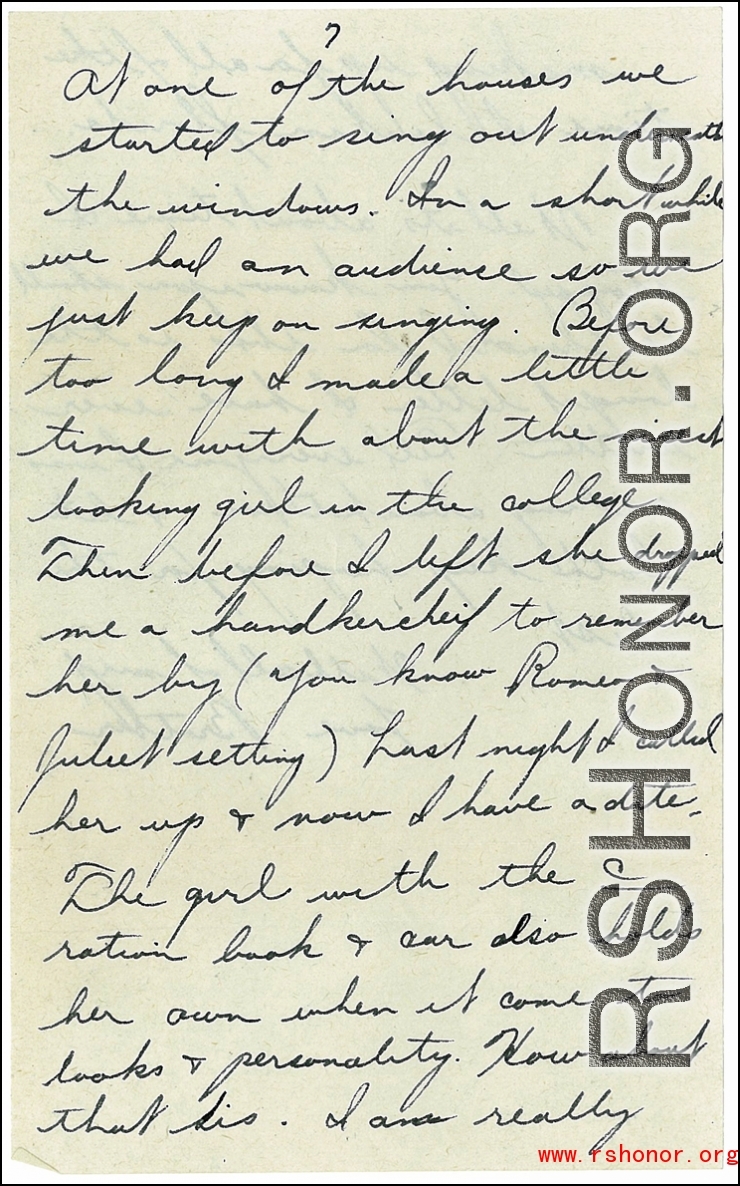 7
At one of the houses we
started to sing out underneath
the windows. In a short while
we had an audience so we
just keep on singing. Before
too long I made a little
time with about the nicest
looking girl in the college
Then before I left she dropped
me a handkercheif to remember
her by (You know Romeo &
Juliet setting) Last night I called
her up & now I have a date.
The girl with the C
ration book & car also holds
her own when it come to
looks & personality. How about
that sis. I am really
RSHONOR.ORG
www.rshonor.org